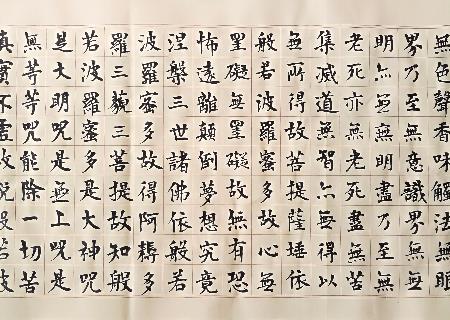 無色聲香味觸法無眼
界乃至無意識界無無
明亦無無明盡乃至無
老死亦無老死盡無苦
集滅道無智亦無得以
無所得故菩提薩埵依
般若波羅蜜多故心無
罣礙無罣礙故無有恐
怖遠離顛倒夢想究竟
涅槃三世諸佛依般若
波羅蜜多故得阿耨多
羅三藐三菩提故知般
若波羅蜜多是大神咒
是大明咒是無上咒是
無等等咒能除一切苦
真實不虛故說般若波